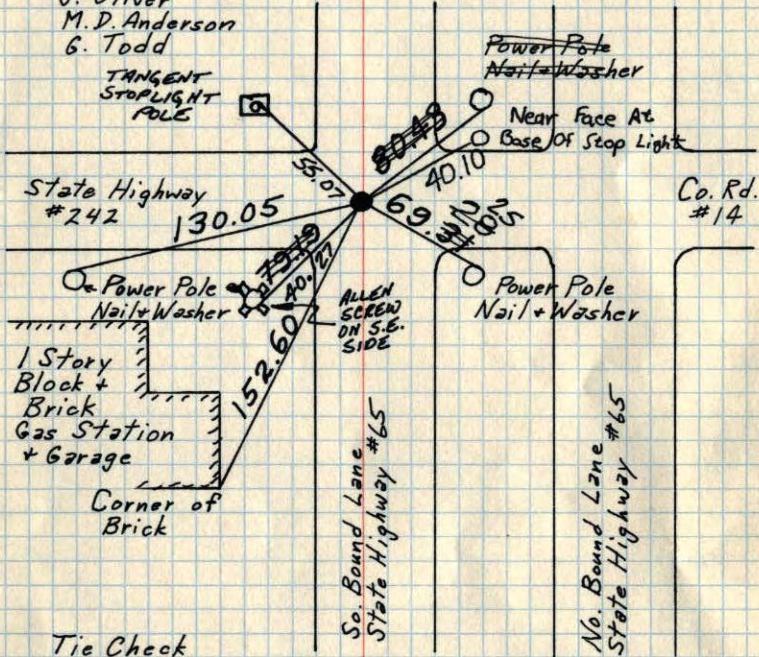 M.D. Anderson
G. Todd
TANGENT
STOPLIGHT
POLE
Power Pole
Nail + Washer
Near Face At
Base Of Stop Light
55.07
80.43
40.10
State Highway
#242
130.05
69.31
28
25
Co. Rd.
#14
Power Pole
Nail + Washer
79.19
40.27
ALLEN
SCREW
ON S.E.
SIDE
Power Pole
Nail + Washer
152.60
1 Story
Block +
Brick
Gas Station
+ Garage
Corner of
Brick
So. Bound Lane
State Highway #65
No. Bound Lane
State Highway #65
Tie Check